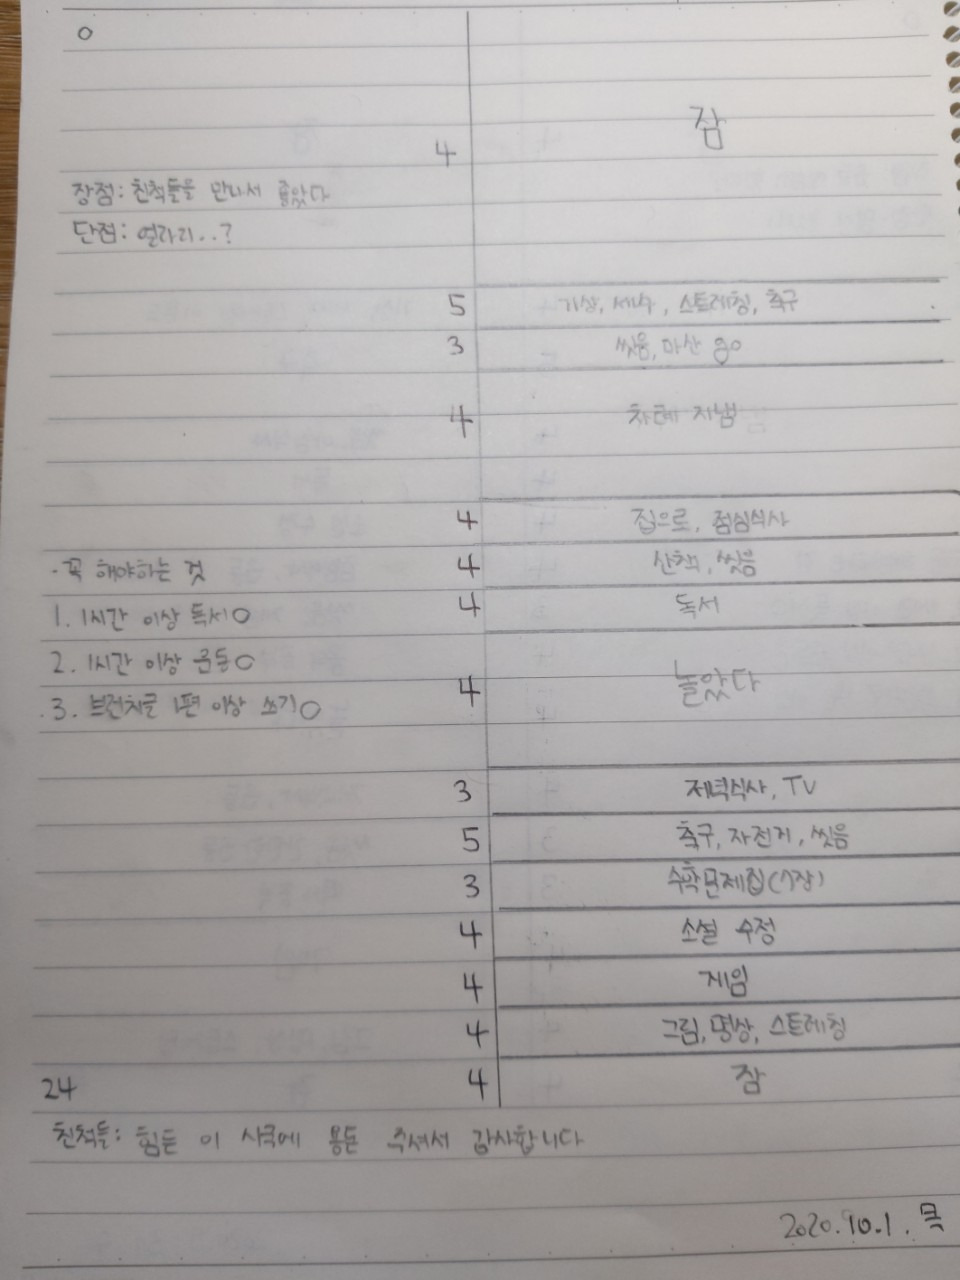 0
4 잠
장점: 친척들을 만나서 좋았다
단점: 얼라리..?
5 기상, 세수, 스트레칭, 축구
3 씻음, 마산 go
4 차례 지냄
4 집으로, 점심식사
·꼭 해야하는 것 4 산책, 씻음
1. 1시간 이상 독서O 4 독서
2. 1시간 이상 운동O
4 놀았다
3. 브런치글 1편 이상 쓰기O
3 저녁식사, TV
5 축구, 자전거, 씻음
3 수학문제집(7장)
4 소설 수정
4 게임
4 그림, 명상, 스트레칭
24 4 잠
친척들: 힘든 이 시국에 용돈 주셔서 감사합니다
2020.10.1. 목